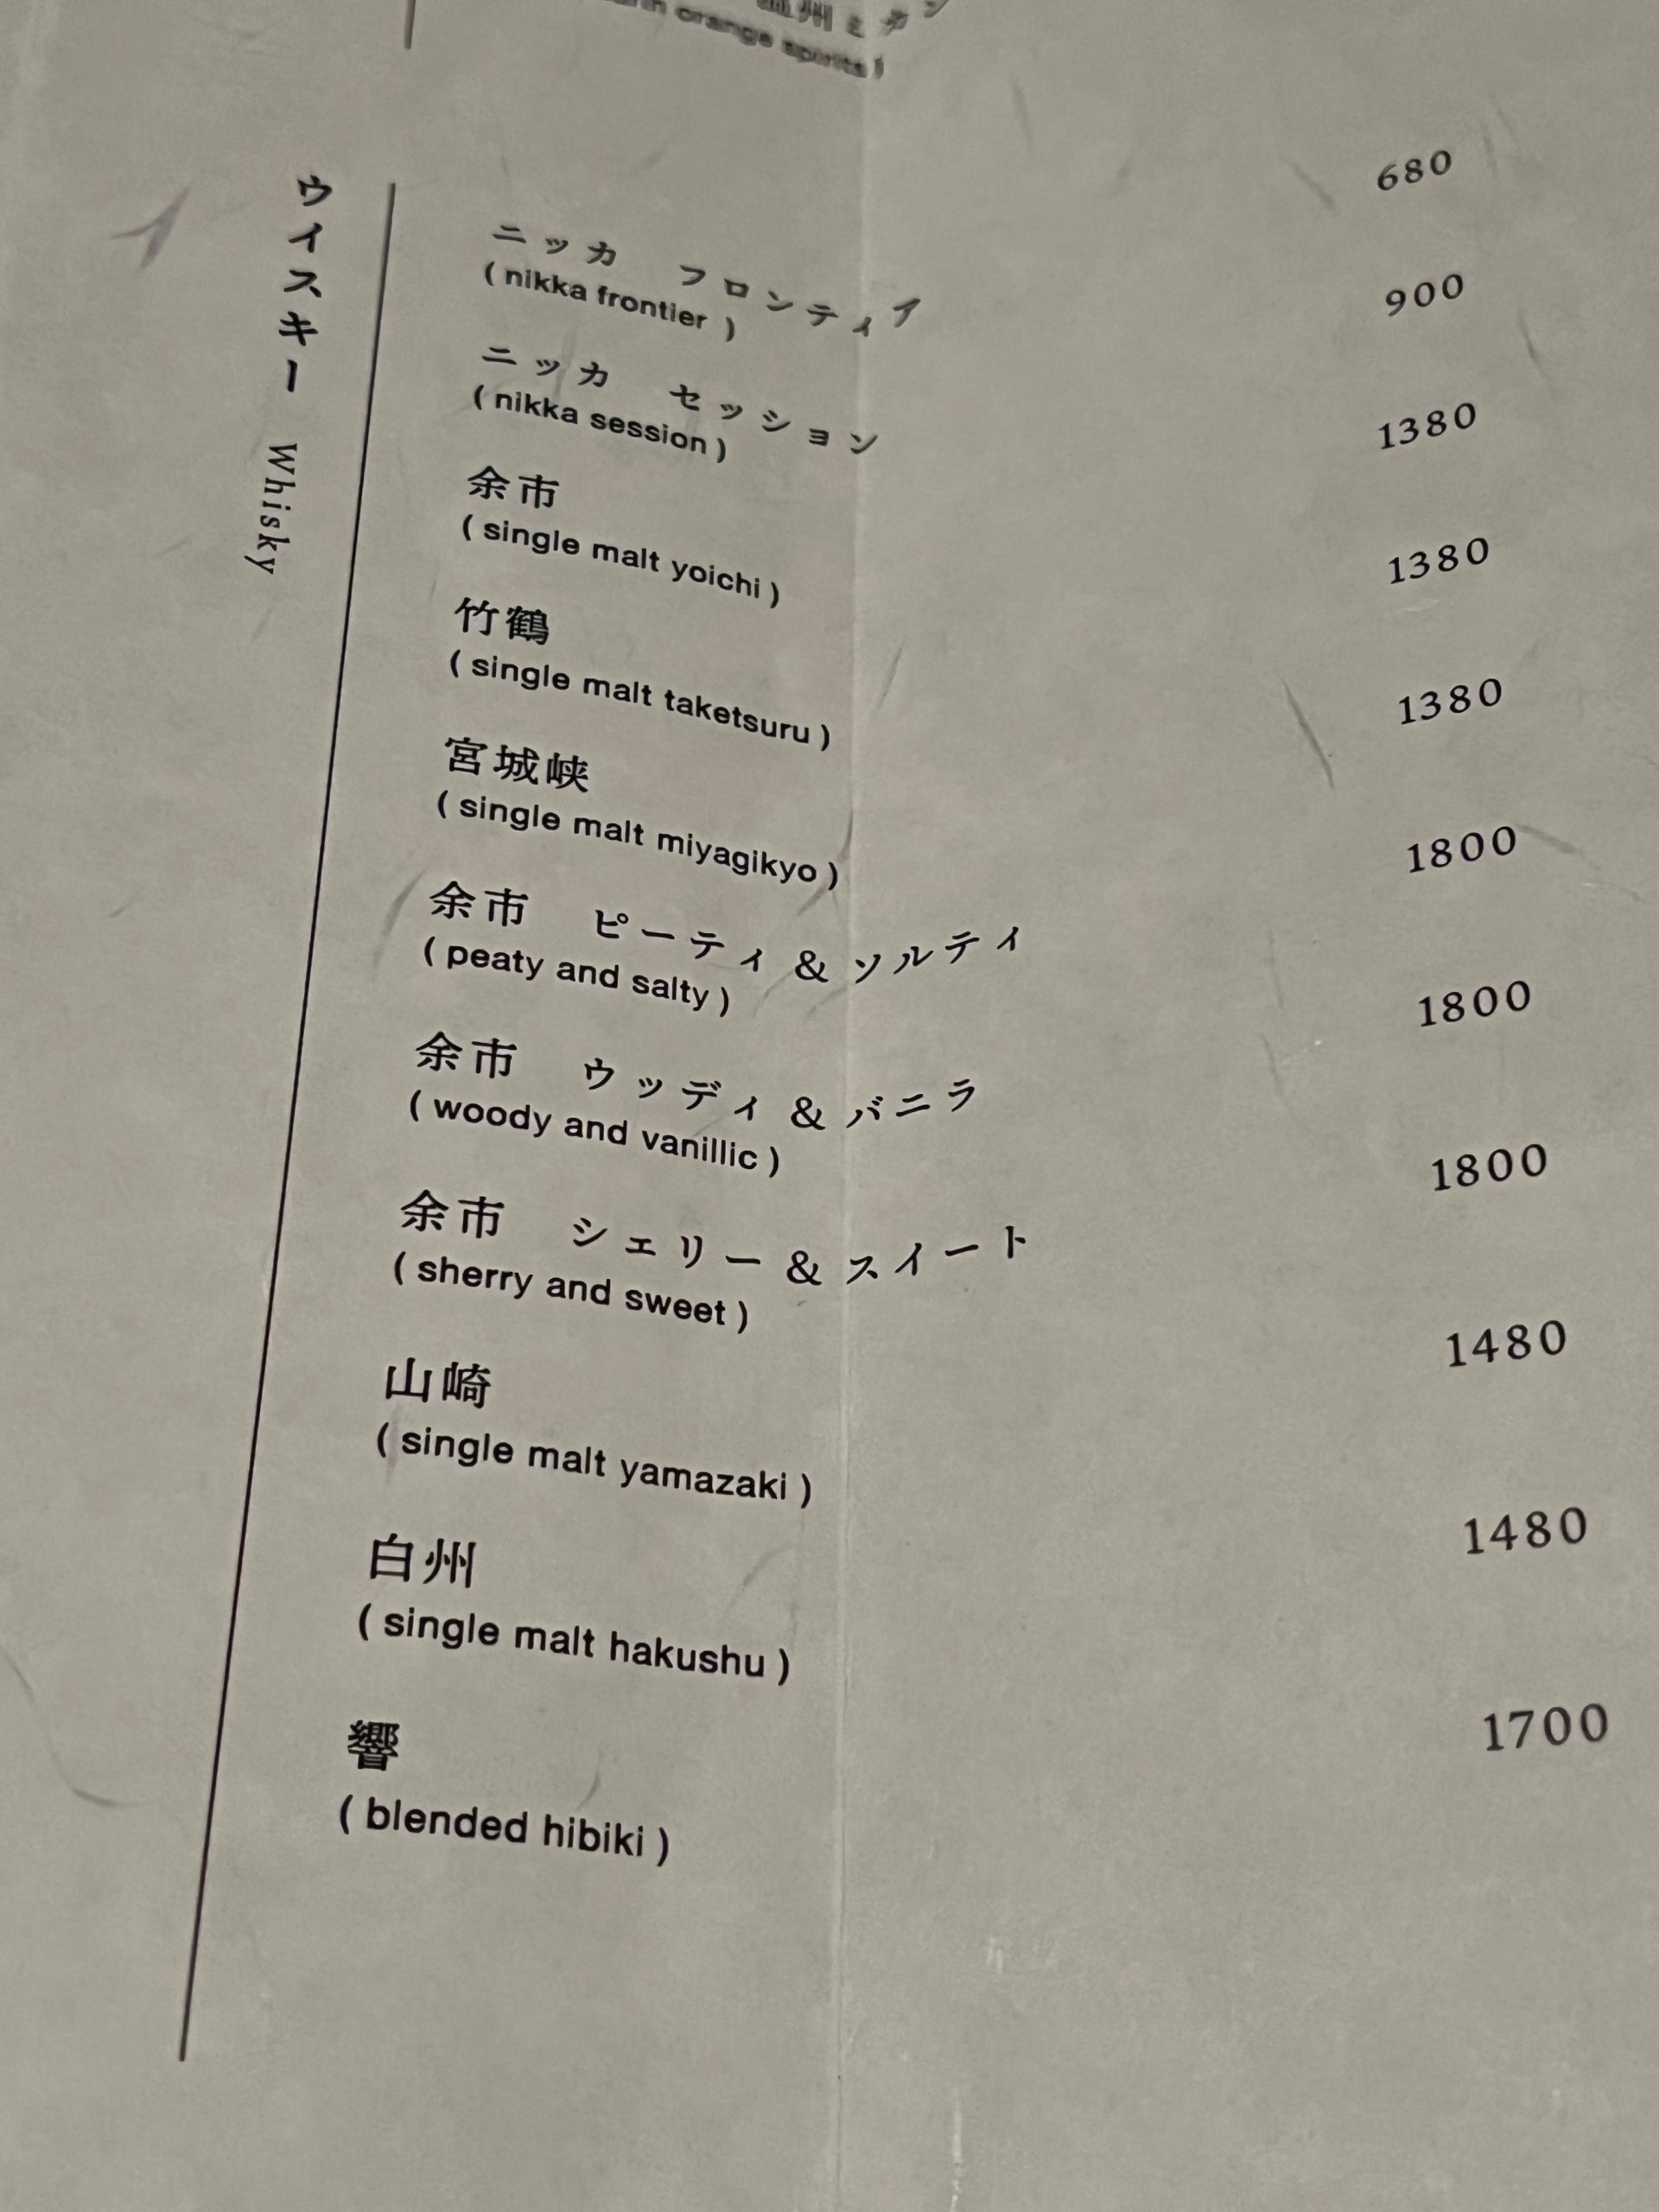 orange spirits )
ウイスキー Whisky
ニッカ フロンティア 680
( nikka frontier )
ニッカ セッション 900
( nikka session )
余市 1380
( single malt yoichi )
竹鶴 1380
( single malt taketsuru )
宮城峡 1380
( single malt miyagikyo )
余市 ピーティ & ソルティ 1800
( peaty and salty )
余市 ウッディ & バニラ 1800
( woody and vanillic )
余市 シェリー & スイート 1800
( sherry and sweet )
山崎 1480
( single malt yamazaki )
白州 1480
( single malt hakushu )
響 1700
( blended hibiki )